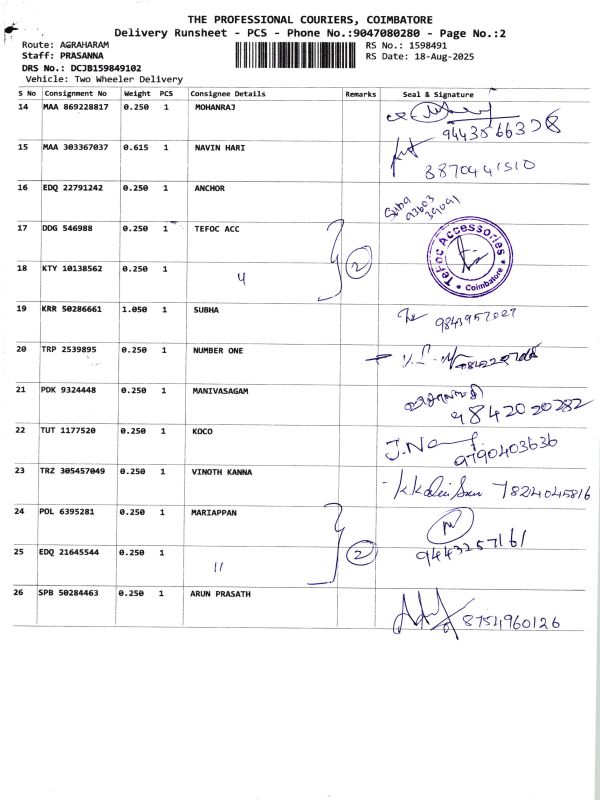 THE PROFESSIONAL COURIERS, COIMBATORE
Delivery Runsheet - PCS - Phone No.:9047080280 - Page No.:2
Route: AGRAHARAM RS No.: 1598491
Staff: PRASANNA RS Date: 18-Aug-2025
DRS No.: DCJB159849102
Vehicle: Two Wheeler Delivery
S No Consignment No Weight PCS Consignee Details Remarks Seal & Signature
14 MAA 869228817 0.250 1 MOHANRAJ
15 MAA 303367037 0.615 1 NAVIN HARI
16 EDQ 22791242 0.250 1 ANCHOR
Suba
17 DDG 546988 0.250 1 TEFOC ACC
2
Tefoc Accessories
* Coimbatore *
18 KTY 10138562 0.250 1
19 KRR 50286661 1.050 1 SUBHA 9843957027
20 TRP 2539895 0.250 1 NUMBER ONE
21 PDK 9324448 0.250 1 MANIVASAGAM
9842020282
22 TUT 1177520 0.250 1 KOCO
9790403636
23 TRZ 305457049 0.250 1 VINOTH KANNA 7824045816
24 POL 6395281 0.250 1 MARIAPPAN
9443257161
25 EDQ 21645544 0.250 1 2
11
26 SPB 50284463 0.250 1 ARUN PRASATH
8754960126